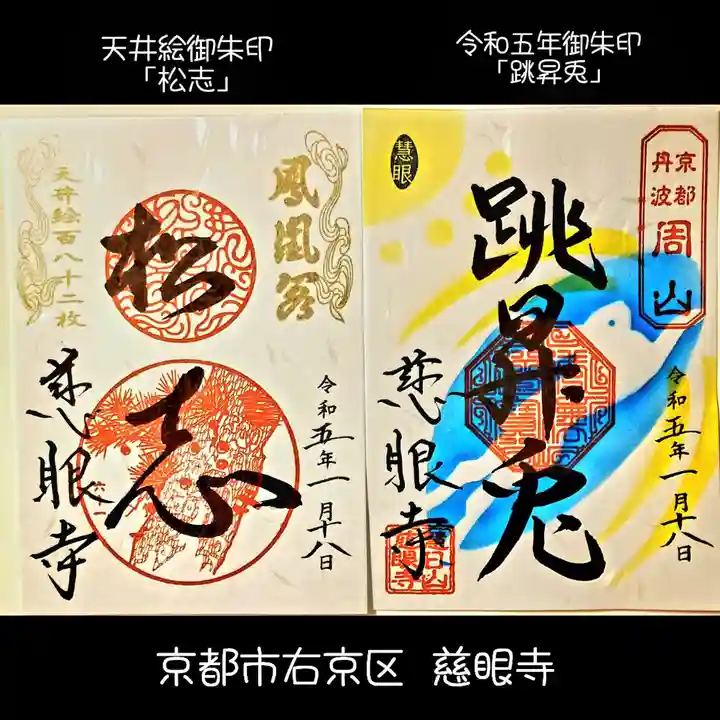 天井絵御朱印
「松志」
令和五年御朱印
「跳昇兎」
天井絵百八十二枚
松志
慈眼寺
令和五年一月十八日
慧眼
京都
丹波
周山
跳昇兎
慈眼寺
令和五年一月十八日
京都市右京区 慈眼寺